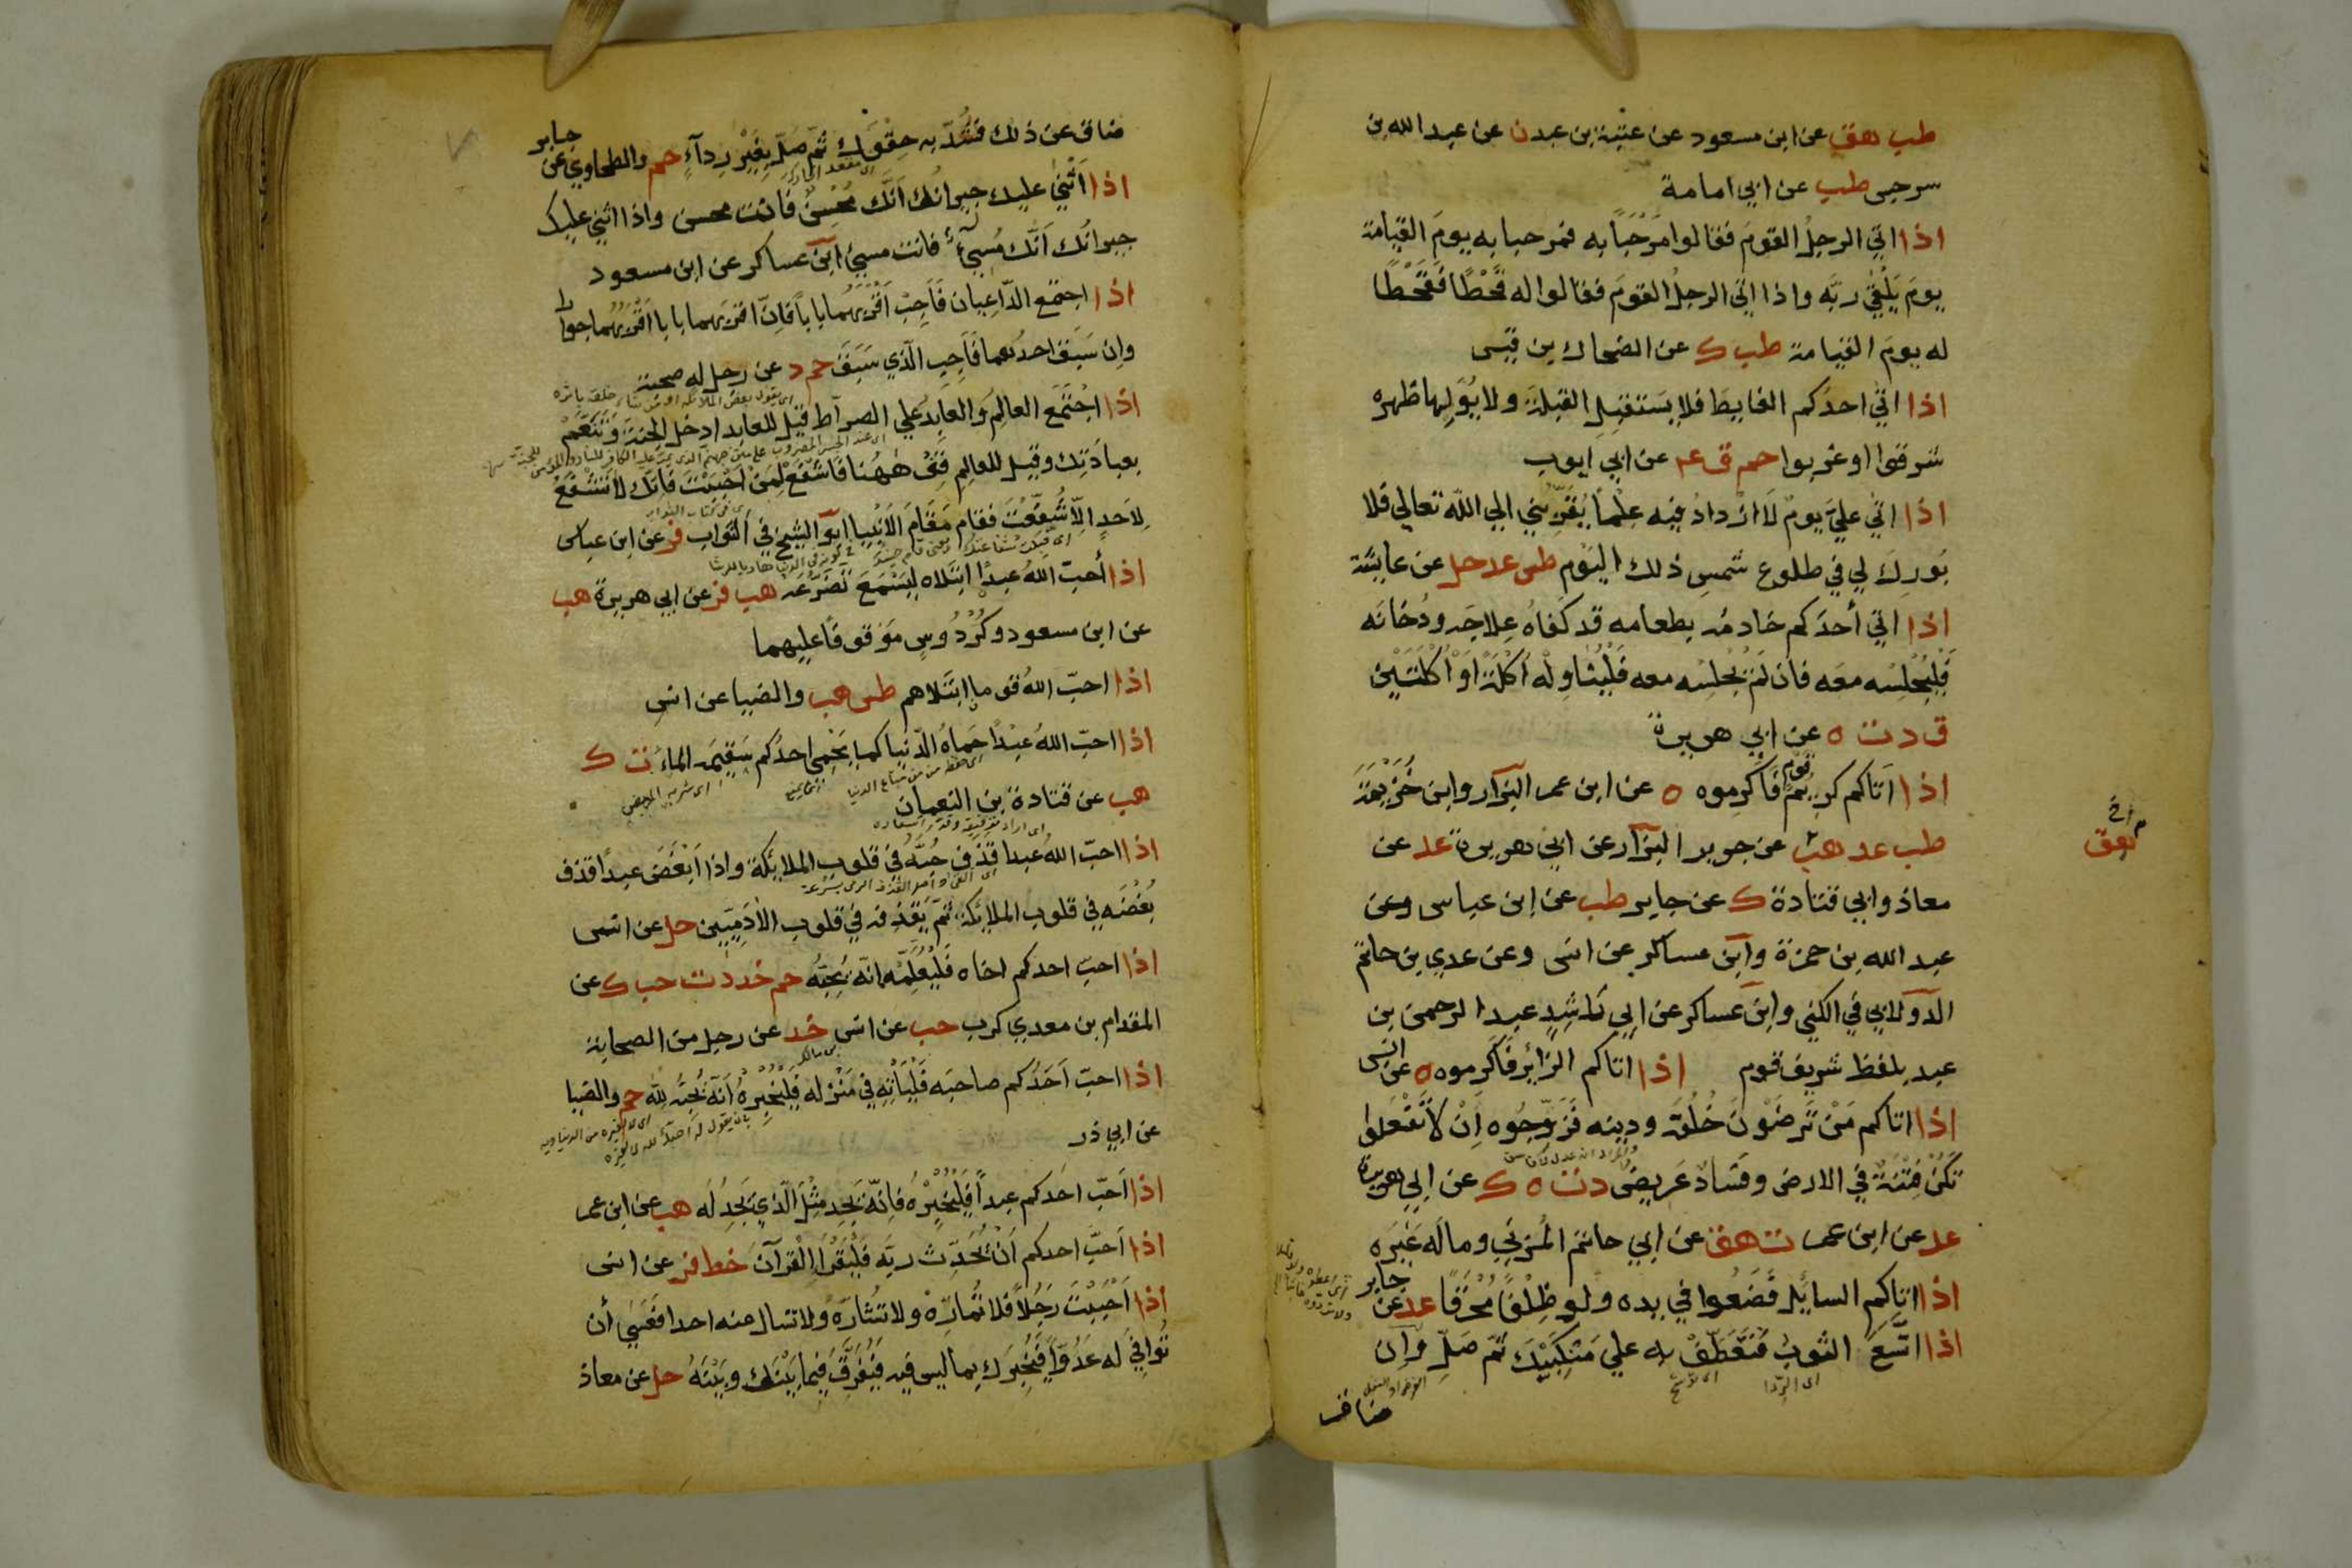 طب هق عن ابن مسعود عن عتبة بن عبدن عن عبد الله بن
سرجس طب عن ابي امامة
اذا اتي الرجلُ القومَ فقالوا مَرْحَبًا به فمرحبا به يومَ القيامة
يومَ يَلْقي ربّه واذا اتي الرجلُ القومَ فقالوا له قَحْطًا فَقَحْطًا
له يومَ القيامة طب ك عن الضحاك بن قيس
اذا اتي احدُكم الغايط فلا يَستقبِلِ القبلةَ ولا يُوَلِّها ظهره
شرقوا او غربوا حم ق عه عن ابي ايوب
اذا اتي عليَّ يومٌ لَا ازْدادُ فيه علمًا يُقَرِّبُني الي اللّه تعالي فلا
بُورِكَ لي في طلوع شمسِ ذلك اليَوْم طس عد حل عن عايشة
اذا اتي أحدَكم خادمُه بطعامه قد كفاهُ عِلاجَه ودُخانَه
فَلْيُجْلِسْه معَه فان لَمْ يُجْلِسْه معه فَلْيُناوِلْه أُكْلَةً اَوْ أُكْلَتَيْنِ
ق د ت ه عن ابي هريرة
اذا اَتاكم كريمُ قومٍ فَاكرِموه ه عن ابن عمر البزار وابن خُزَيْمَة
طب عد هب عن جرير البزار عن ابي هريرة عد عن
معاذ وابي قتادة ك عن جابر طب عن ابن عباس وعن
عبد الله بن حمزة وابن عساكر عن انس وعن عدي بن حاتم
الدولابي في الكني وابن عساكر عن ابي راشدٍ عبد الرحمن بن
عبد بلفظ شريف قوم اذا اتاكم الزائر فَاكرموه ه عن انس
اذا اتاكم مَنْ تَرضَوْنَ خُلُقَه ودينه فَزَوِّجُوه اِنْ لَا تَفْعَلوا
تَكُنْ فِتْنَةٌ في الارض وفَسادٌ عَريضٌ د ت ه ك عن ابي هريرة
عد عن ابن عمر ت هق عن ابي حاتم المُزَني وما لَه غَيْرَه
اذا اتاكم السايلُ فَضَعُوا في يده ولو ظِلْفًا مُحْرَقًا عد عن جابر
اذا اتَّسَعَ الثوبُ فَتَعَطَّفْ به علي مَنْكِبَيْكَ ثُمّ صَلِّ واِن
اي الرِّدا
ضاق
ضاق عن ذلك فَشُدَّ به حِقْوَكَ ثُمّ صَلِّ بِغَيْرِ رِدآءٍ حم والطحاوي عن جابر
اذا اَثْنٰي عليك جيرانُك اَنَّك مُحْسِنٌ فَانت محسن واذا اثني عليك
جيرانُك اَنَّك مُسِيءٌ فانت مسيئ ابن عساكر عن ابن مسعود
اذا اجتمع الدّاعِيان فَاَجِبْ اَقْرَبَهُما بابا فَاِنَّ اقربَهما بابا اَقْرَبُهُما جوارا
وان سَبَقَ احدُهما فَاَجِبِ الّذي سَبَقَ حم د عن رجل له صحبة
اذا اجْتَمَعَ العالِمُ وَالعابِدُ علي الصراط قيل للعابد ادخل الجنةَ وَتَنَعَّمْ
بعبادَتِك وقيل للعالِمِ قِفْ هٰهُنا فَاشْفَعْ لِمَنْ اَحْبَبْتَ فَانّك لا تَشْفَعُ
لِاَحَدٍ اِلّا شُفِّعْتَ فقام مَقامَ الَانْبِيا ابو الشيخ في الثواب فر عن ابن عباس
اذا أحبّ اللهُ عبدًا ابتلاه لِيَسْمَعَ تَضَرُّعَه هب فر عن ابي هريرة هب
عن ابن مسعود وكُرْدُوسٍ مَوْقوفًا عليهما
اذا احبّ اللهُ قوما ابتَلاهم طس هب والضيا عن انس
اذا احبّ اللهُ عبدًا حَماهُ الدّنيا كما يَحْمي احدُكم سَقيمَه الماءَ ت ك
هب عن قتادة بن النعمان
اذا احبّ اللهُ عبدا قذف حُبَّهُ في قلوب الملايكة واذا اَبْغَضَ عبدًا قذف
بُغْضَه في قلوب الملايكة ثمّ يَقْذِفه في قلوب الآدَمِيّين حل عن انس
اذا احبّ احدكم اخاه فَلْيُعْلِمْه انّه يُحِبُّه حم خد د ت حب ك عن
المقدام بن معدي كرب حب عن انس خد عن رجل من الصحابة
اذا احبّ اَحَدُكم صاحبَه فَلْيَأْتِهِ في مَنْزِله فَلْيُخْبِرْهُ اَنّه يُحِبُّه لِلّه حم والضيا
عن ابي ذر
اذا اَحَبّ احَدكم عبداً فَلْيُخْبِرْهُ فَانّه يَجِد مِثْلَ الّذي يَجِدُ لَه هب عن ابن عمر
اذا اَحبَّ احدكم اَنْ يُحَدِّث ربَّه فَلْيَقْرَاِ الْقرآن خط فر عن انس
اذا اَحْبَبْتَ رَجُلاً فلا تُمارِّهْ ولا تُشارِّه ولا تسال عنه احدا فَعَسٰي أن
تُوافِيَ لَه عَدُوًّا فَيُخْبِرَك بِما ليس فيه فَيُفَرِّقَ فيما بَيْنَك وبَيْنَهُ حل عن معاذ